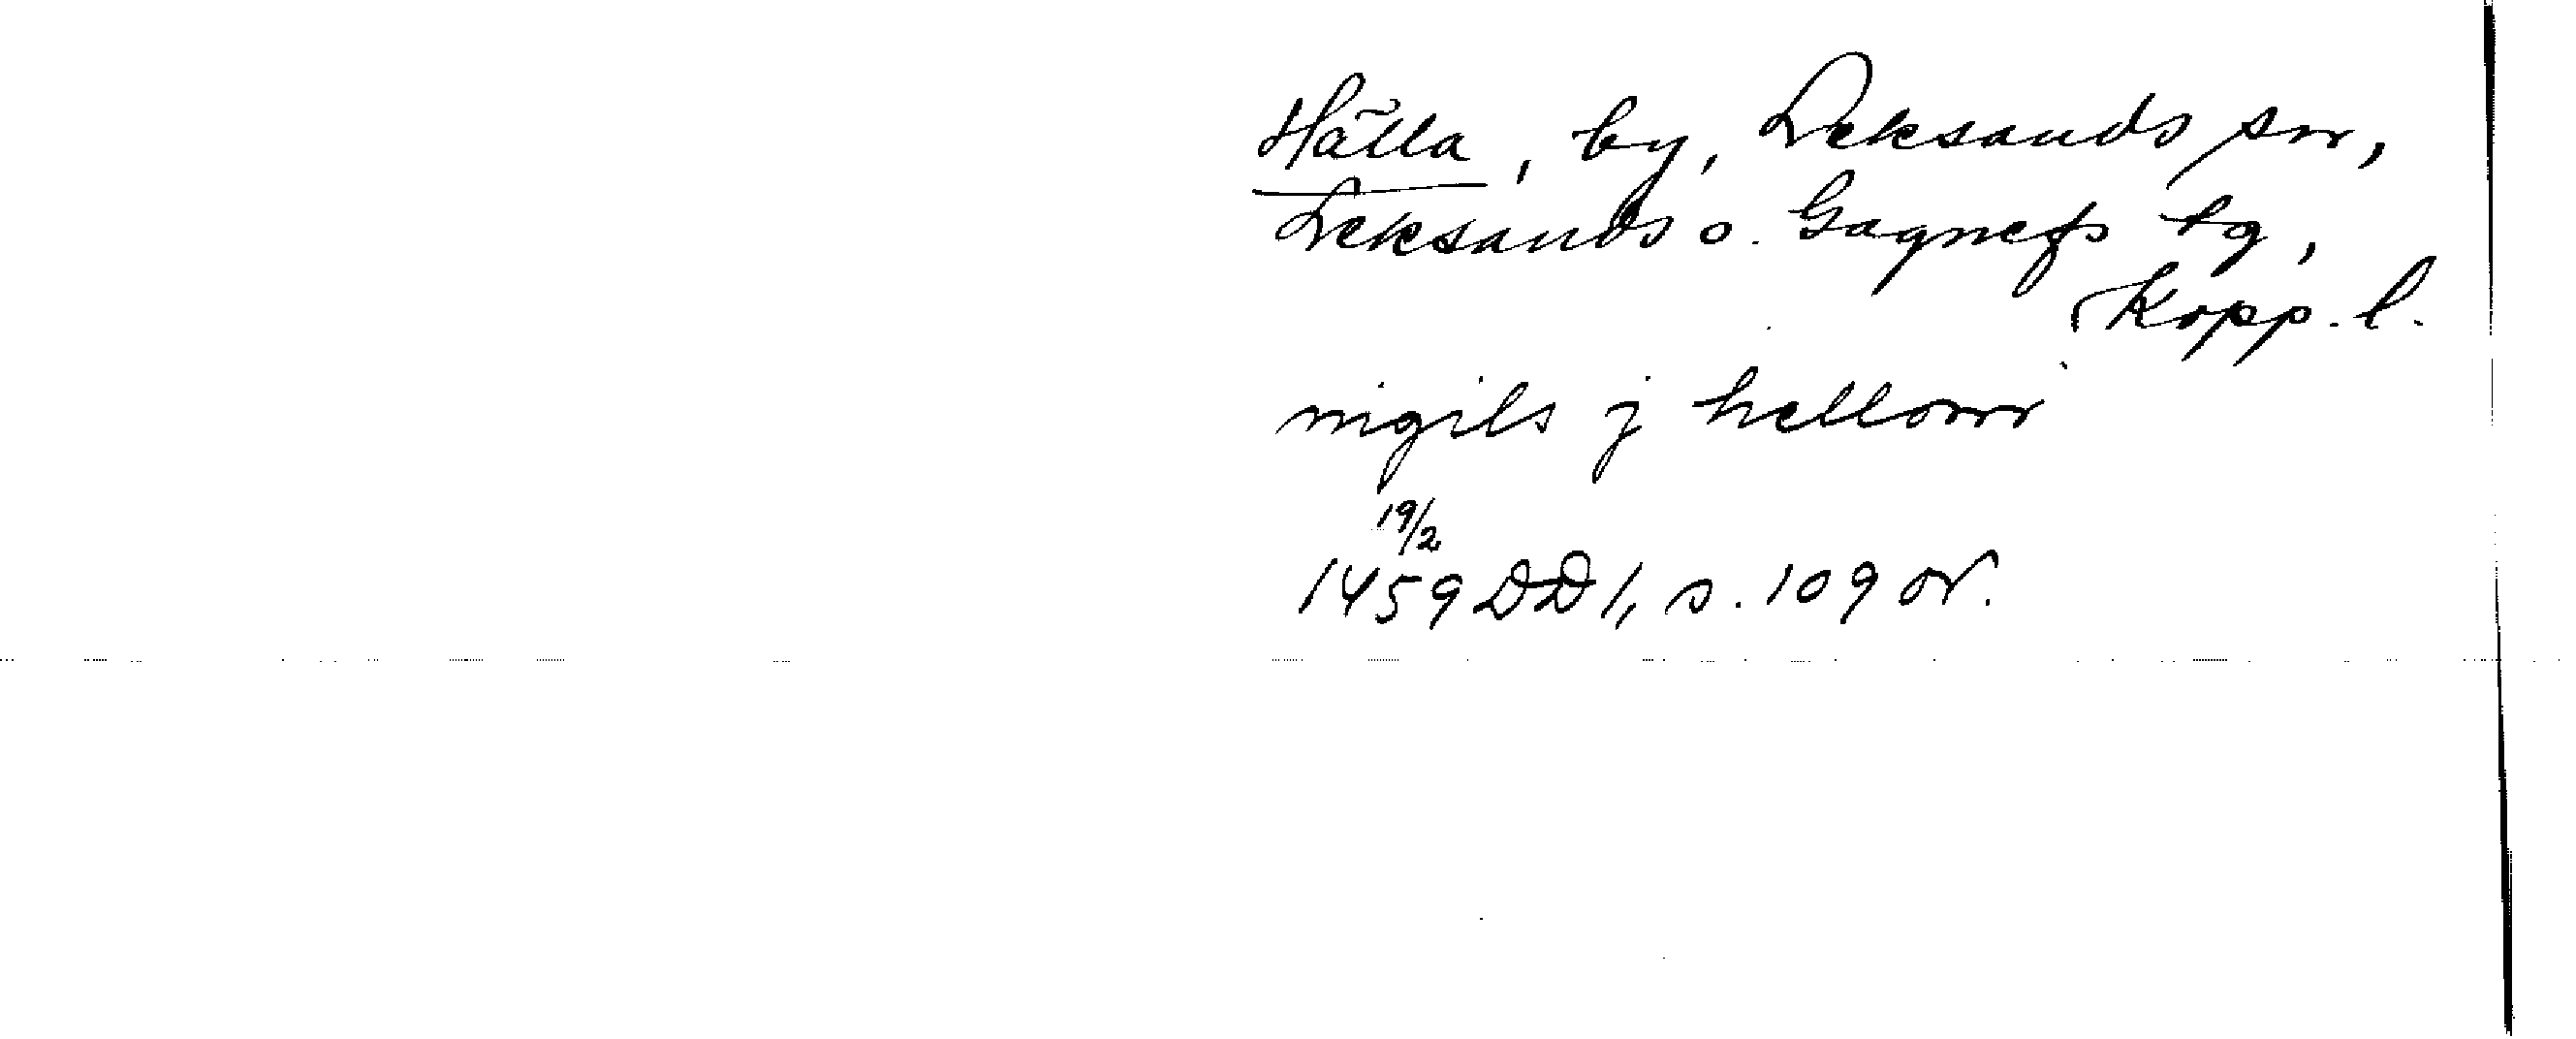 Hälla, by, Leksands sn,
Leksands o. Gagnefs tg,
Kopp. l.
nigils j hellom
19/2
1459 DD 1, s. 109 or.